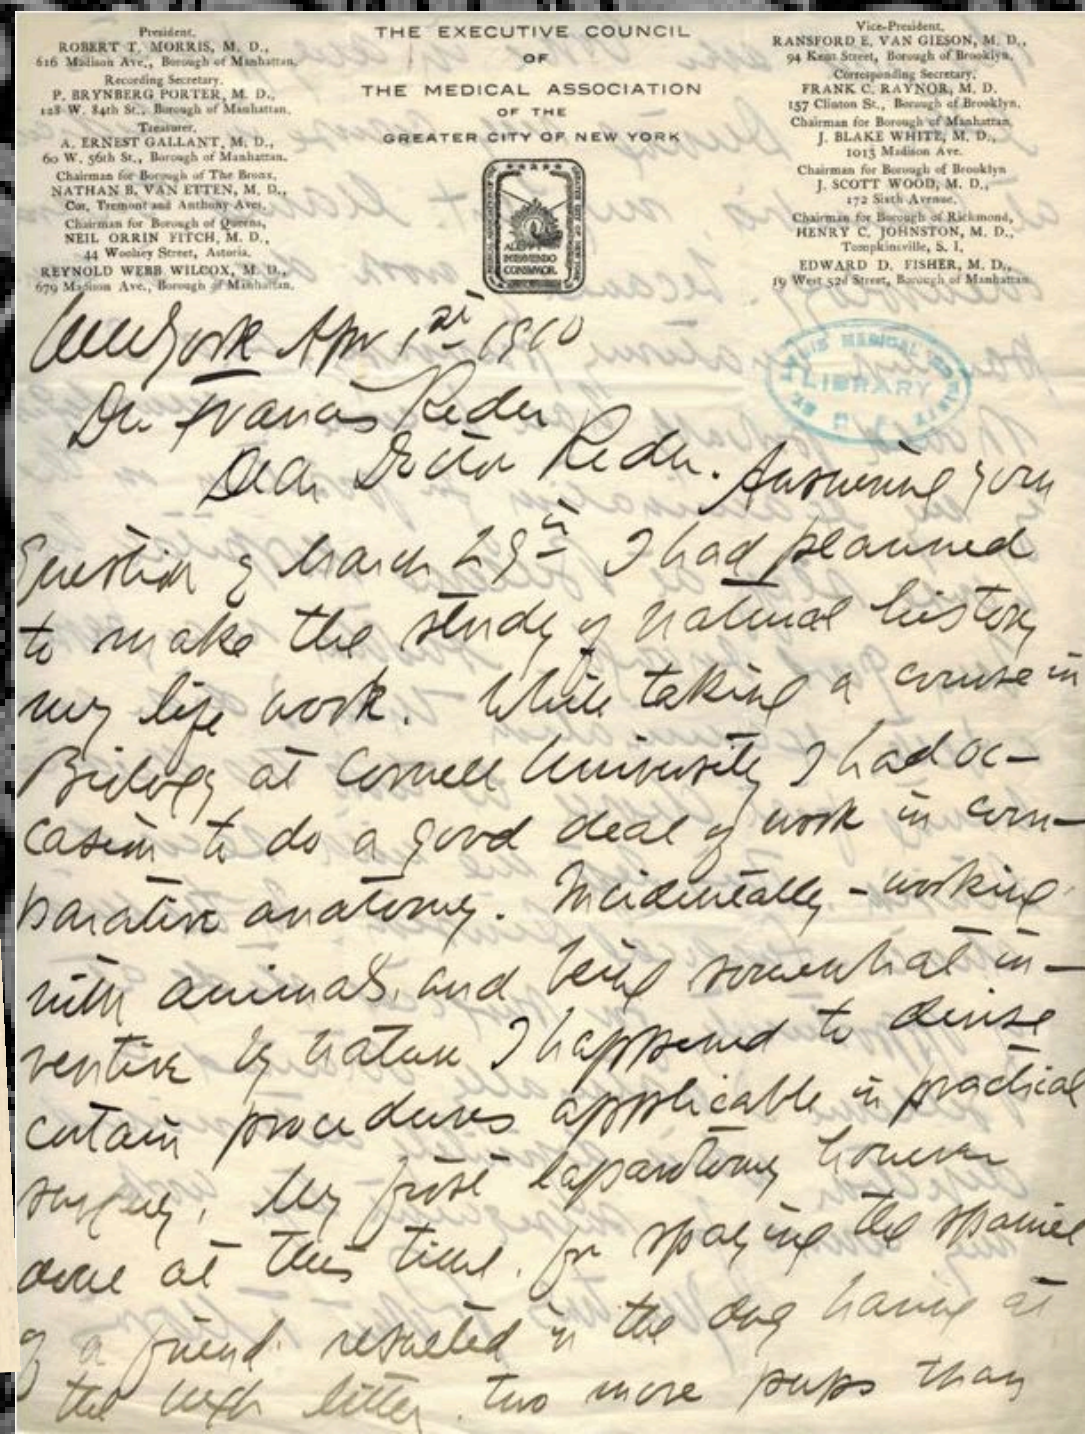 President,
ROBERT T. MORRIS, M. D.,
616 Madison Ave., Borough of Manhattan.
Recording Secretary.
P. BRYNBERG PORTER, M. D.,
128 W. 84th St., Borough of Manhattan.
Treasurer.
A. ERNEST GALLANT, M. D.,
60 W. 56th St., Borough of Manhattan.
Chairman for Borough of The Bronx,
NATHAN B. VAN ETTEN, M. D.,
Cor. Tremont and Anthony Aves.
Chairman for Borough of Queens,
NEIL ORRIN FITCH, M. D.,
44 Woolsey Street, Astoria.
REYNOLD WEBB WILCOX, M. D.,
679 Madison Ave., Borough of Manhattan.
THE EXECUTIVE COUNCIL
OF
THE MEDICAL ASSOCIATION
OF THE
GREATER CITY OF NEW YORK
Vice-President,
RANSFORD E. VAN GIESON, M. D.,
94 Kent Street, Borough of Brooklyn.
Corresponding Secretary,
FRANK C. RAYNOR, M. D.
157 Clinton St., Borough of Brooklyn.
Chairman for Borough of Manhattan
J. BLAKE WHITE, M. D.,
1013 Madison Ave.
Chairman for Borough of Brooklyn
J. SCOTT WOOD, M. D.,
172 Sixth Avenue.
Chairman for Borough of Richmond,
HENRY C. JOHNSTON, M. D.,
Tompkinsville, S. I.
EDWARD D. FISHER, M. D.,
19 West 52d Street, Borough of Manhattan
MEDICAL
LIBRARY
New York Apr 1st 1910
Dr Francis Reder
Dear Doctor Reder. Answering your
question of March 29th I had planned
to make the study of natural history
my life work. While taking a course in
Biology at Cornell University I had oc-
casion to do a good deal of work in com-
parative anatomy. Incidentally - working
with animals, and being somewhat in-
ventive by nature I happened to devise
certain procedures applicable in practical
surgery. My first laparotomy however
done at this time, for spaying the spaniel
of a friend resulted in the dog having at
the next litter two more pups than